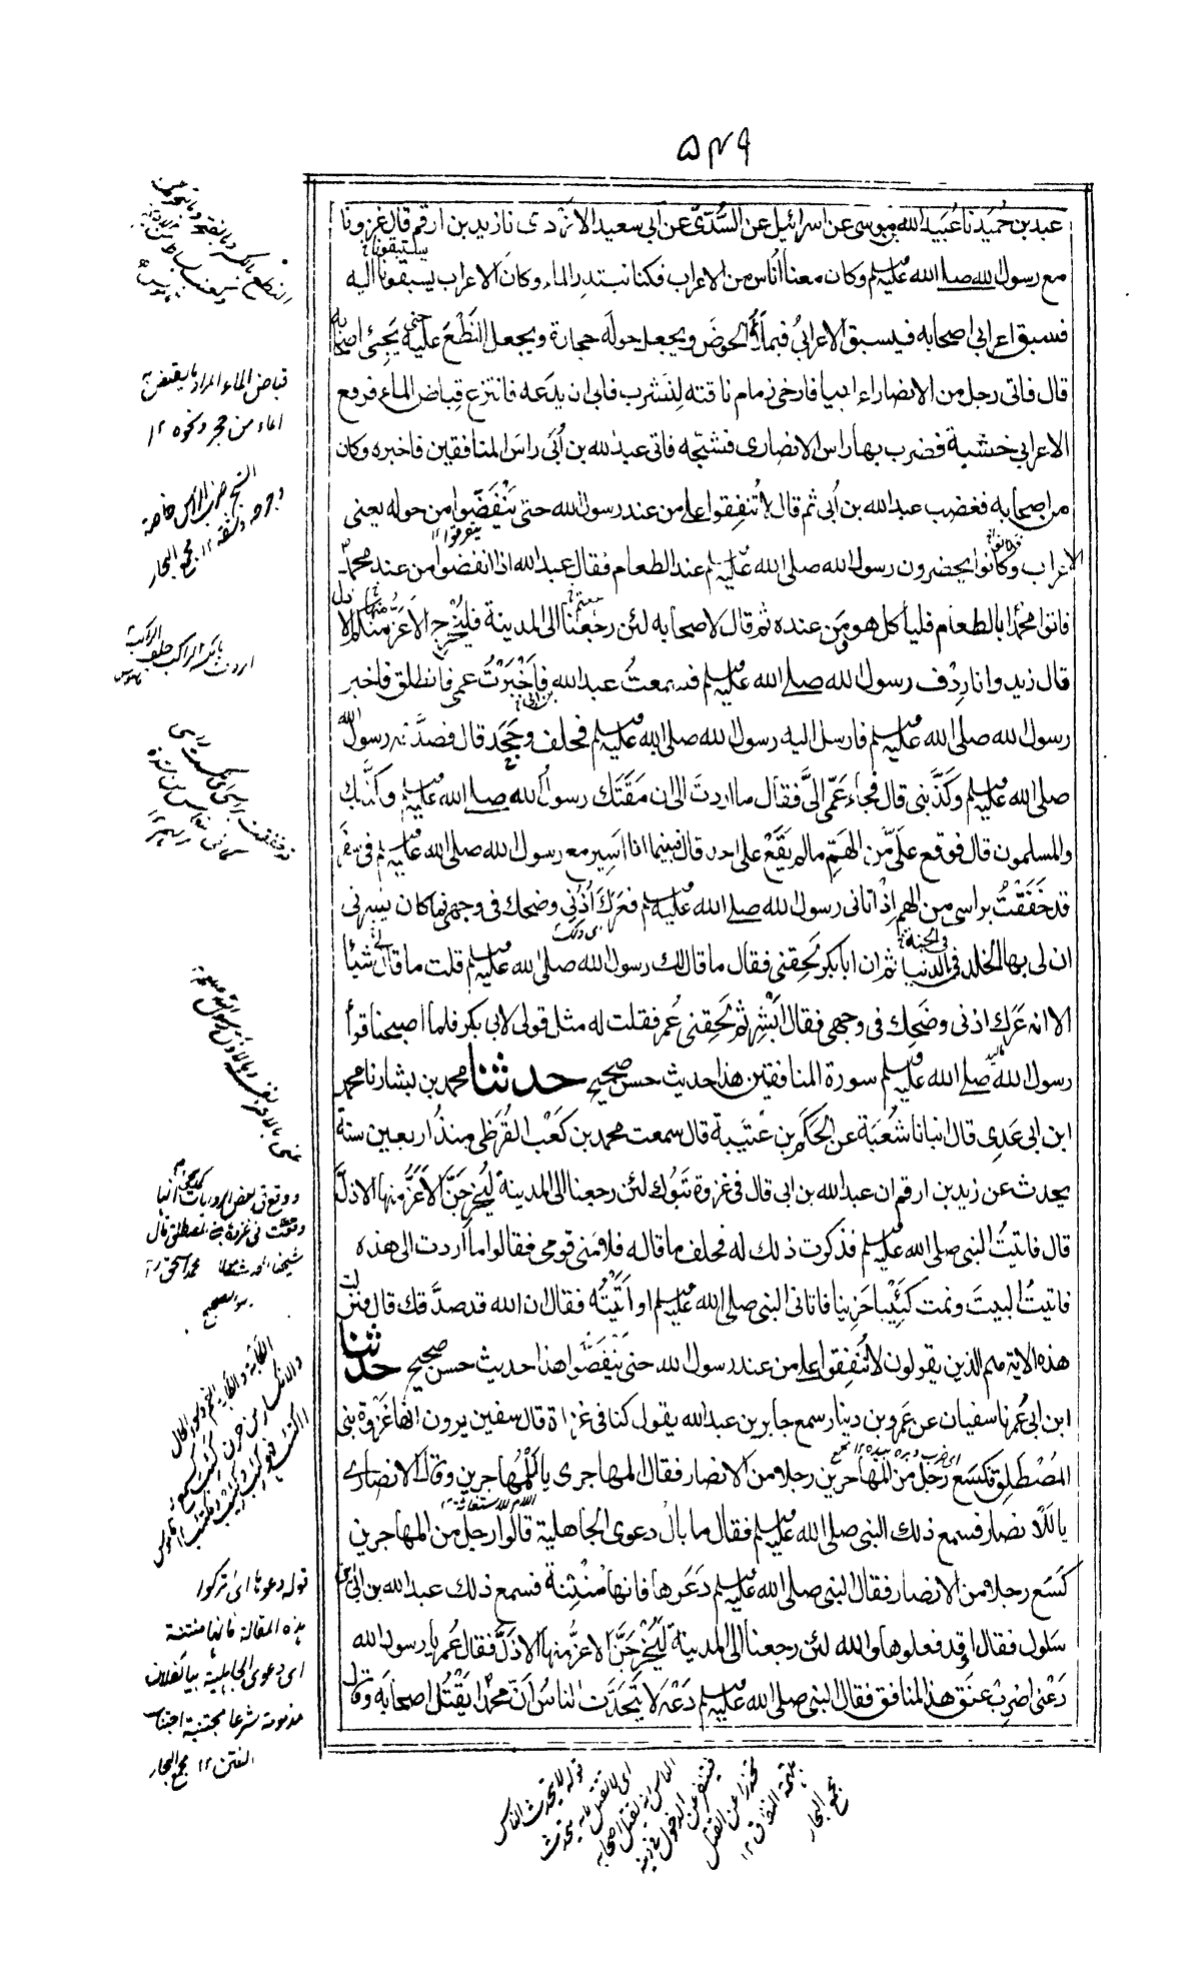 ۵۴۹
عبد بن حُمَيد نا عُبَيد الله بن موسى عن اسرائيل عن السُّدّيّ عن ابي سعيد الازدى نا زيد بن ارقم قال غزونا
مع رسول الله صلى الله عليه وسلم وكان معنا اُناس من الاعراب فكنا نبتدر الماء وكان الاعراب يسبقونا اليه
فسبق اعرابى اصحابه فيسبق الاعرابىُ فيملأُ الحوضَ ويجعل حوله حجارة ويجعل النَّطْعَ عليه حتى يَجِئَ اصحابه
قال فاتى رجل من الانصار اعرابيا فارخى زمام ناقته لِتَشرب فابى ان يدَعه فانتزع قِباض الماء فرفع
الاعرابى خشبة فضرب بها راس الانصارى فشجّه فاتى عبدَ الله بن اُبَىّ راسَ المنافقين فاخبره وكان
من اصحابه فغضب عبد الله بن اُبى ثم قال لا تُنفِقوا على من عند رسول الله حتى يَنْفَضّوا من حوله يعنى
الاعراب وكانوا يحضرون رسول الله صلى الله عليه وسلم عند الطعام فقال عبد الله اذا انفضوا من عند محمد
فاتوا محمدًا بالطعام فلياكل هو ومَن عنده ثم قال لاصحابه لئن رجعنا الى المدينة فليُخرِج الاَعَزّ منها الاذل
قال زيد وانا رِدْف رسول الله صلى الله عليه وسلم فسمعتُ عبد الله بن ابى فاَخْبَرْتُ عمى فانطلق فاخبر
رسول الله صلى الله عليه وسلم فارسل اليه رسول الله صلى الله عليه وسلم فحلف وجَحَد قال فصدَّقه رسول الله
صلى الله عليه وسلم وكَذَّبنى قال فجاء عَمّى الىَّ فقال ما اردتَ الى ان مَقَتَك رسول الله صلى الله عليه وسلم وكذّبك
والمسلمون قال فوقع علىَّ من الهَمّ ما لم يَقَعْ على احد قال فبينما انا اَسِير مع رسول الله صلى الله عليه وسلم فى سفر
قد خَفَقْتُ براسى من الهم اِذْ اتانى رسول الله صلى الله عليه وسلم فعَرَكَ اُذُنى وضحك فى وجهى فما كان يسرنى
ان لى بها الخلد فى الدنيا ثم ان ابا بكر لَحِقنى فقال ما قال لك رسول الله صلى الله عليه وسلم قلت ما قال لى شيئا
الا انه عَرَك اذنى وضَحِك فى وجهى فقال اَبْشِر ثم لَحِقنى عُمر فقلت له مثل قولى لابى بكر فلما اصبحنا قرأ
رسول الله صلى الله عليه وسلم سورة المنافقين هذا حديث حسن صحيح حدثنا محمد بن بشار نا محمد
ابن ابى عَدِى قال انبانا شُعْبَة عن الحَكَم بن عُتَيبة قال سمعت محمد بن كَعْب القُرَظى منذ اربعين سنة
يحدث عن زيد بن ارقم ان عبد الله بن ابى قال فى غزوة تَبُوك لئن رجعنا الى المدينة لَيُخْرِجَنَّ الاَعَزُّ منها الاذلَّ
قال فاتيتُ النبى صلى الله عليه وسلم فذكرت ذلك له فحلف ما قاله فلامنى قومى فقالوا ما اردت الى هذه
فاتيتُ البيتَ ونمت كَئِيْبا حَزِينا فاتانى النبى صلى الله عليه وسلم او اَتَيْتُه فقال ان الله قد صدَّقك قال فنزلت
هذه الاية هم الذين يقولون لا تُنفِقوا على من عند رسول الله حتى يَنْفَضّوا هذا حديث حسن صحيح حدثنا
ابن ابى عُمر نا سفيان عن عَمرو بن دينار سمع جابر بن عبد الله يقول كنا فى غزاة قال سفين يرون انها غَزْوة بنى
المُصْطَلِق فكسَع رجل من المهاجرين رجلا من الانصار فقال المهاجرى يا لَلْمُهاجرين وقال الانصارى
يا لَلْانصار فسمع ذلك النبى صلى الله عليه وسلم فقال ما بالُ دعوى الجاهلية قالوا رجل من المهاجرين
كَسَع رجلا من الانصار فقال النبى صلى الله عليه وسلم دَعُوها فانها مُنْتِنة فسمع ذلك عبد الله بن ابى بن
سَلول فقال اوَقد فعلوها والله لئن رجعنا الى المدينة لَيُخْرِجَنَّ الاعزُّ منها الاذَلَّ فقال عُمر يا رسول الله
دَعْنى اضرِبْ عنق هذا المنافق فقال النبى صلى الله عليه وسلم دَعْه لا يتحَدَّث الناسُ اَنَّ محمدًا يَقْتُل اصحابَه وقال
قباض الماء المراد ما يقبض به
الماء من حجر ونحوه ١٢
الشج ضرب الرأس خاصة
وجرحه وشقه ١٢ مجمع البحار
ووقع فى بعض الروايات انها
وقعت فى غزوة بنى المصطلق قال
قوله دعوها اى اتركوا
هذه المقالة فانها منتنة
اى دعوى الجاهلية بيا لفلان
مذمومة شرعا مجتنبة اجتناب
النتن ١٢ مجمع البحار
قوله لا يتحدث الناس
اى لا تقتله يتحدث
الناس انه يقتل اصحابه
فينفر عن الدخول فى دينه
مجمع البحار